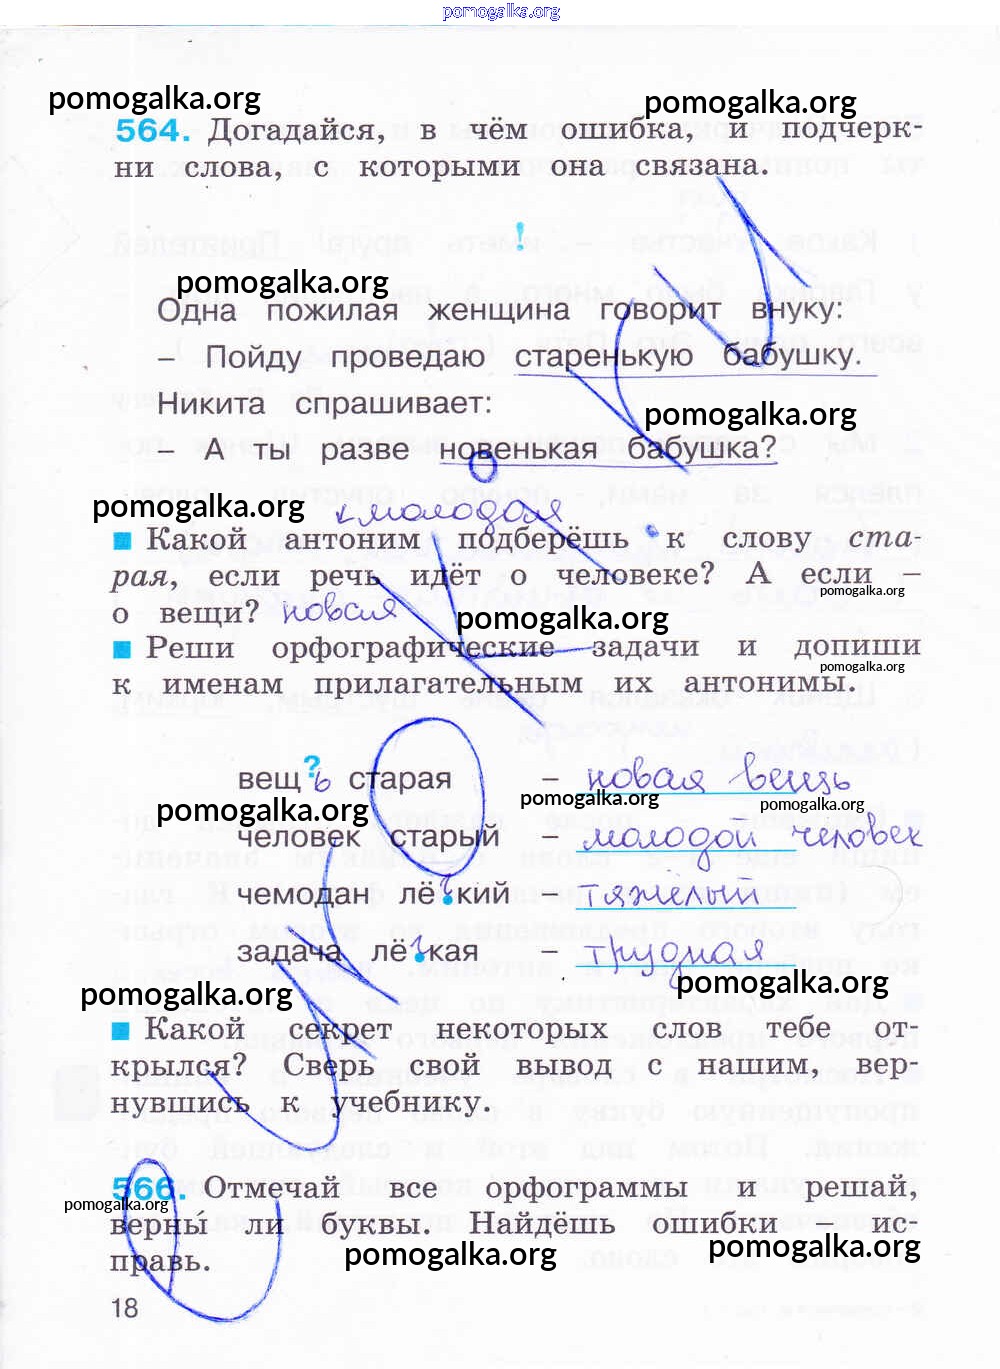 pomogalka.org
pomogalka.org pomogalka.org
564. Догадайся, в чём ошибка, и подчерк-
ни слова, с которыми она связана.
!
pomogalka.org
Одна пожилая женщина говорит внуку:
– Пойду проведаю старенькую бабушку.
Никита спрашивает:
pomogalka.org
– А ты разве новенькая бабушка?
pomogalka.org
молодая
Какой антоним подберёшь к слову ста-
рая, если речь идёт о человеке? А если –
pomogalka.org
о вещи? новая
pomogalka.org
Реши орфографические задачи и допиши
pomogalka.org
к именам прилагательным их антонимы.
?
вещь старая – новая вещь
pomogalka.org pomogalka.org pomogalka.org
человек старый – молодой человек
чемодан лёгкий – тяжёлый
задача лёгкая – трудная
pomogalka.org pomogalka.org
Какой секрет некоторых слов тебе от-
крылся? Сверь свой вывод с нашим, вер-
нувшись к учебнику.
566. Отмечай все орфограммы и решай,
pomogalka.org
верны́ ли буквы. Найдёшь ошибки – ис-
pomogalka.org pomogalka.org
правь.
18